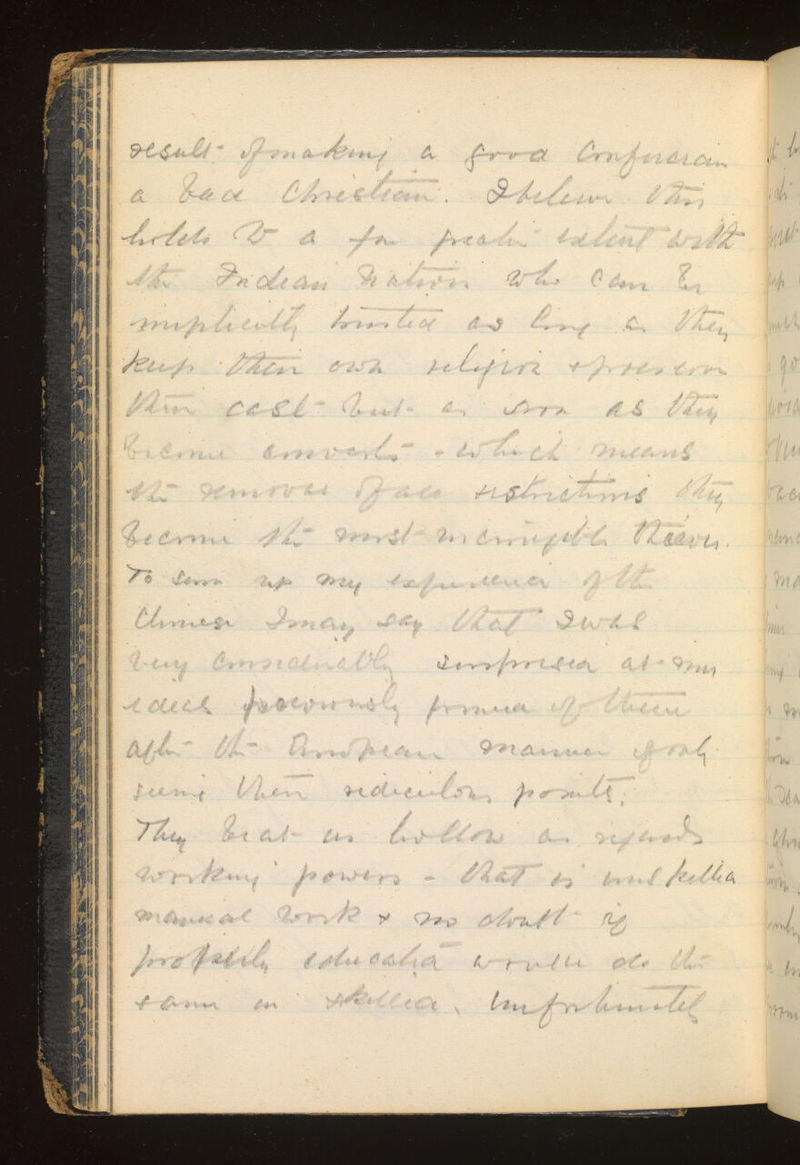 result of making a good Confucian
a bad Christian. I believe this
holds to a far greater extent with
the Indian Nations who can be
implicitly trusted as long as they
keep their own religion & preserve
their cast but as soon as they
become converts - which means
the removal of all restrictions they
become the most incorrigible thieves.
To sum up my experience of the
Chinese I may say that I was
very considerably surprised at my
ideas previously formed of them
after the European manner of only
seeing their ridiculous points.
They beat us hollow as regards
working powers - that is unskilled
manual work & no doubt if
properly educated would do the
same in skilled. Unfortunately